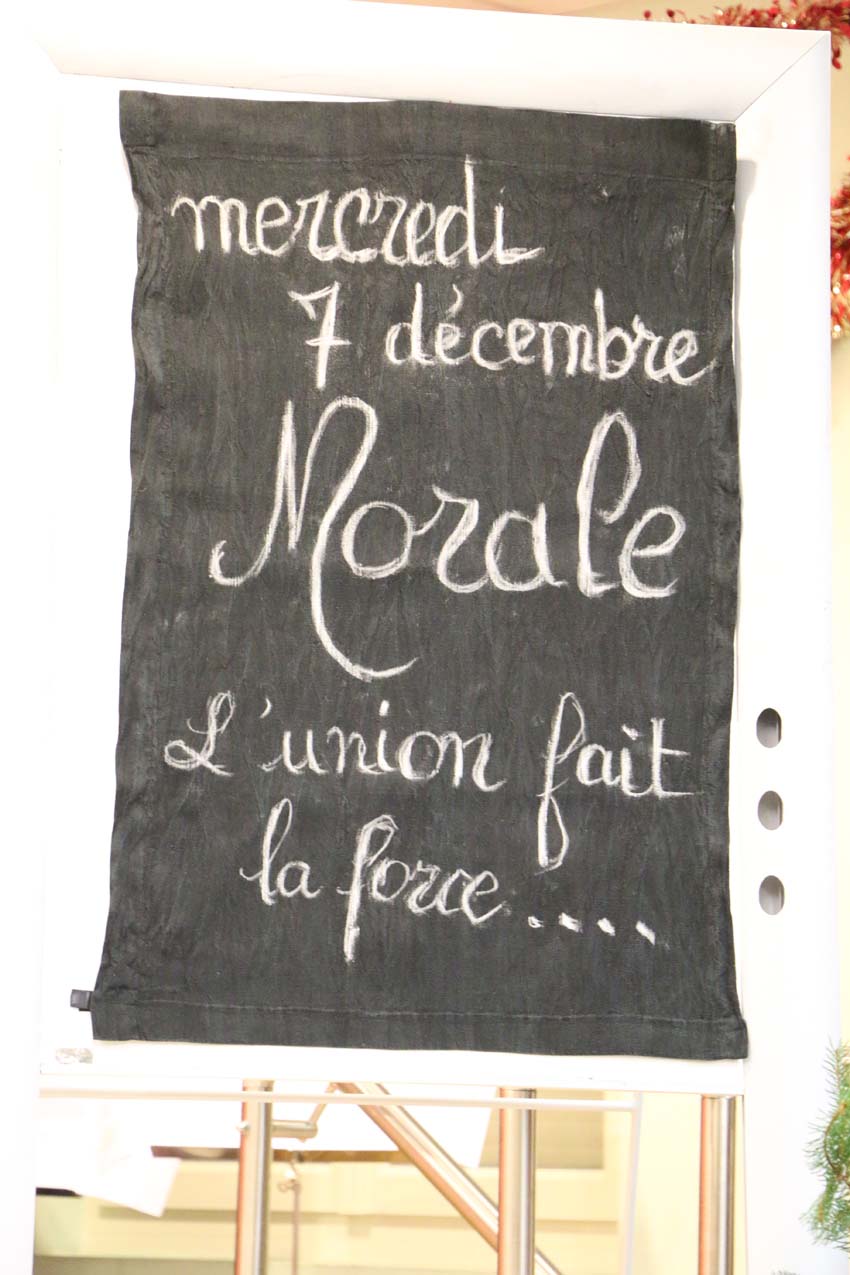 mercredi
7 décembre
Morale
L'union fait
la force....